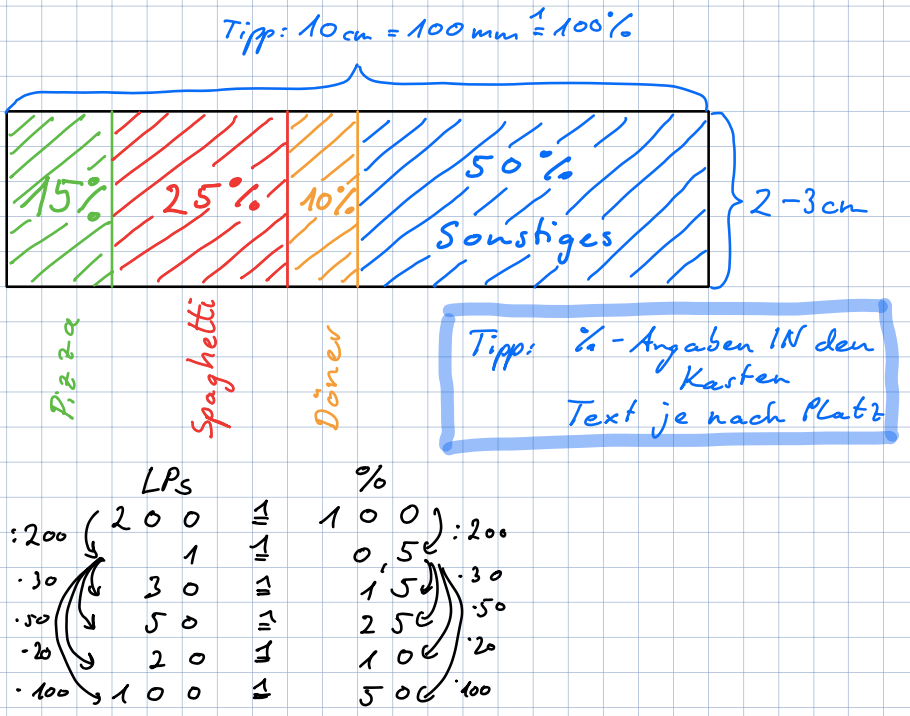 Tipp: 10 cm = 100 mm ≙ 100%
15% 25% 10% 50%
Sonstiges
2-3cm
Pizza
Spaghetti
Döner
Tipp: %-Angaben IN den
Kasten
Text je nach Platz
LPs %
200 ≙ 100
:200 :200
1 ≙ 0,5
·30 30 ≙ 15 ·30
·50 50 ≙ 25 ·50
·20 20 ≙ 10 ·20
·100 100 ≙ 50 ·100